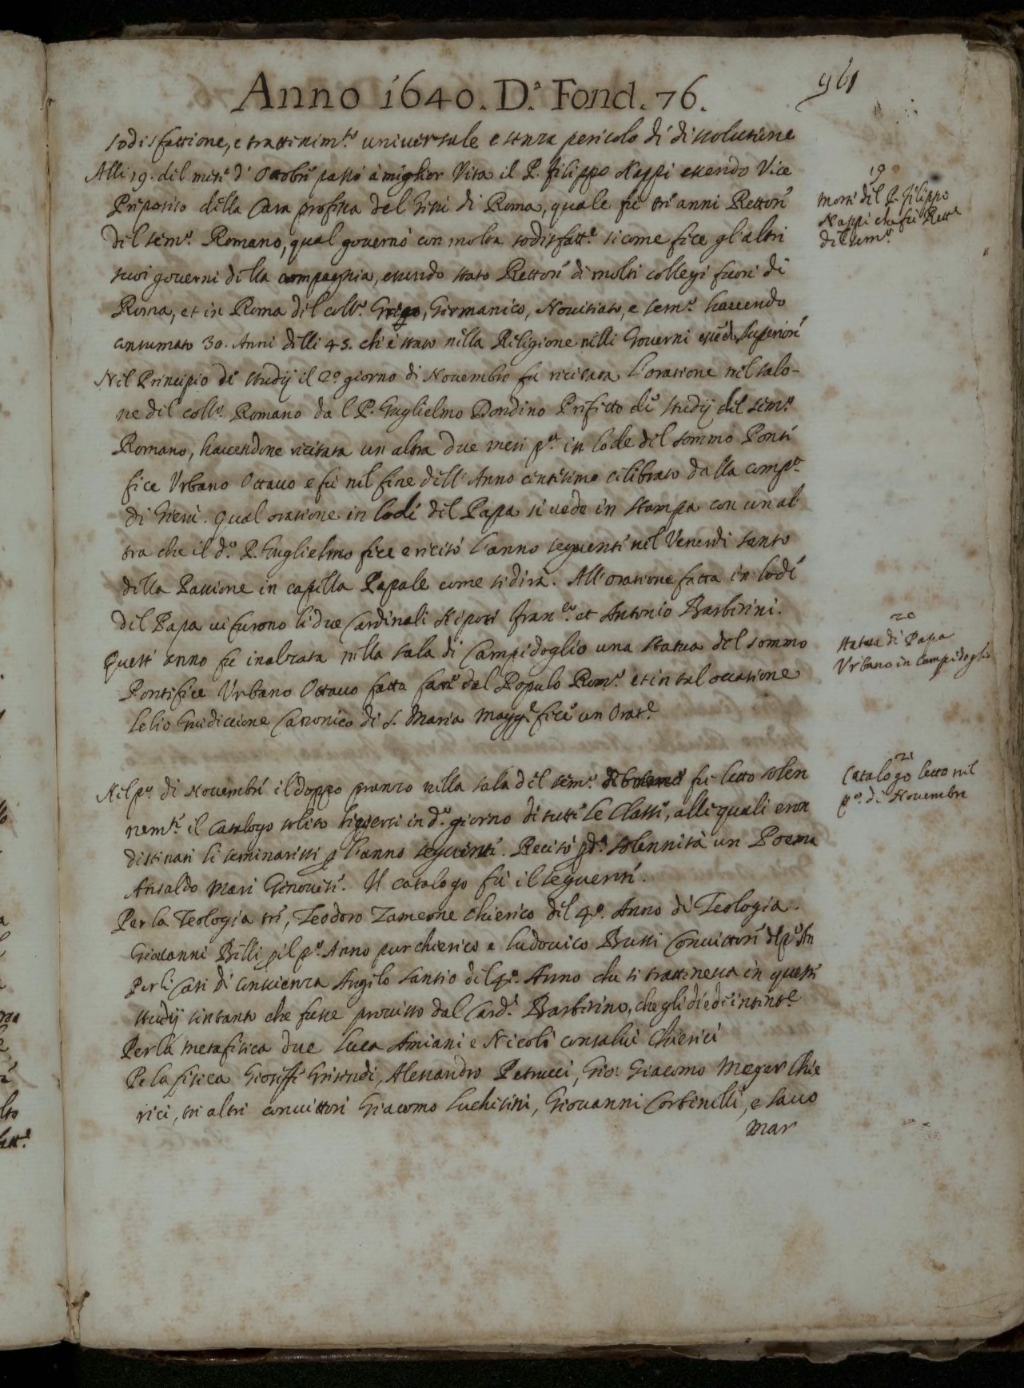 Anno 1640. D.ª Fond. 76.
961
sodisfattione, e trattenim.to universale e senza pericolo di dissolutione
Alli 19. del mese d'Ottobre passò à miglior Vita il P. Filippo Nappi essendo Vice
Preposito della Casa professa del Giesù di Roma, quale fu tre anni Rettore
del sem.º Romano, qual governò con molta sodisfatt.e sicome fece gl'altri
suoi governi della compagnia, essendo stato Rettore di molti collegi fuori di
Roma, et in Roma del coll.º Greco, Germanico, Novitiato, e sem.º havendo
consumato 30. Anni delli 45. ch'è stato nella Religione nelli Governi Superiore
19
Morte del P. Filippo
Nappi che fù Rett.e
del sem.º
Nel Principio de studij il 2º giorno di Novembre fu recitata l'oratione nel salo-
ne del coll.º Romano dal P. Guglielmo Dondino Prefetto de studij del sem.º
Romano, havendone recitata un altra due mesi p.ª in lode del sommo Ponte
fice Vrbano Ottavo e fù nel fine dell'Anno centesimo celebrato dalla comp.ª
di Giesù. Qual oratione in lode del Papa si vede in stampa con un al
tra che il d.º P. Guglielmo fece e recitò l'anno seguente nel Venerdi santo
della Passione in capella Papale come si dirà. All'oratione fatta in lode
del Papa vi furono li due Cardinali Nipoti Fran.co et Antonio Barberini.
Quest'anno fu inalzata nella sala di Campidoglio una statua del sommo
Pontefice Vrbano Ottavo fatta fare dal Populo Rom.º et in tal occasione
Lelio Guidiccione Canonico di S. Maria Magg.e fece un Orat.e
20
statua di Papa
Vrbano in Campidoglio
Nel p.º di Novembre il doppo pranzo nella sala del sem.º fu letto solen
nem.te il Catalogo solito leggersi in d.º giorno di tutte le Classi, alle quali eron
destinati li seminaristi p l'anno seguente. Recitò p d.ª solennità un Poema
Ansaldo Mari Genovese. Il catalogo fù il seguente.
21
Catalogo letto nel
p.º di Novembre
Per la Teologia tre, Teodoro Zameone chierico del 4º. Anno di Teologia.
Giovanni Billi p il p.º Anno pur chierico e Ludovico Brusi Convittore del p.º An
Per li Casi di conscienza Angelo Santio del p.º Anno che si tratteneva in questi
studij sintanto che fusse provisto dal Card.e Barberino, che gli diede
Per la metafisica due Luca Amiani e Nicolò Consalui Chierici
Pe la fisica Gioseffe Grisendi, Alessandro Petrucci, Gio: Giacomo Meger Chie
rici, tre altri convittori Giacomo Luchesini, Giovanni Corbinelli, e Savo
mar